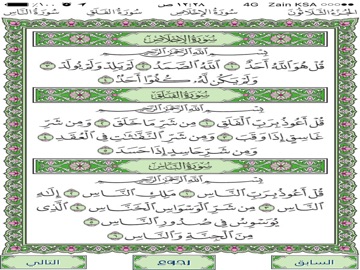 ١٠٠٪ ١٢:٢٨ ص 4G Zain KSA
الجزء الثلاثون سورة الإخلاص سورة الفلق سورة الناس
سورة الإخلاص
بسم الله الرحمن الرحيم
قُلْ هُوَ ٱللَّهُ أَحَدٌ ١ ٱللَّهُ ٱلصَّمَدُ ٢ لَمْ يَلِدْ وَلَمْ يُولَدْ ٣
وَلَمْ يَكُن لَّهُۥ كُفُوًا أَحَدٌۢ ٤
سورة الفلق
بسم الله الرحمن الرحيم
قُلْ أَعُوذُ بِرَبِّ ٱلْفَلَقِ ١ مِن شَرِّ مَا خَلَقَ ٢ وَمِن شَرِّ
غَاسِقٍ إِذَا وَقَبَ ٣ وَمِن شَرِّ ٱلنَّفَّٰثَٰتِ فِى ٱلْعُقَدِ ٤
وَمِن شَرِّ حَاسِدٍ إِذَا حَسَدَ ٥
سورة الناس
بسم الله الرحمن الرحيم
قُلْ أَعُوذُ بِرَبِّ ٱلنَّاسِ ١ مَلِكِ ٱلنَّاسِ ٢ إِلَٰهِ
ٱلنَّاسِ ٣ مِن شَرِّ ٱلْوَسْوَاسِ ٱلْخَنَّاسِ ٤ ٱلَّذِى
يُوَسْوِسُ فِى صُدُورِ ٱلنَّاسِ ٥
مِنَ ٱلْجِنَّةِ وَٱلنَّاسِ ٦
السابق رجوع التالي